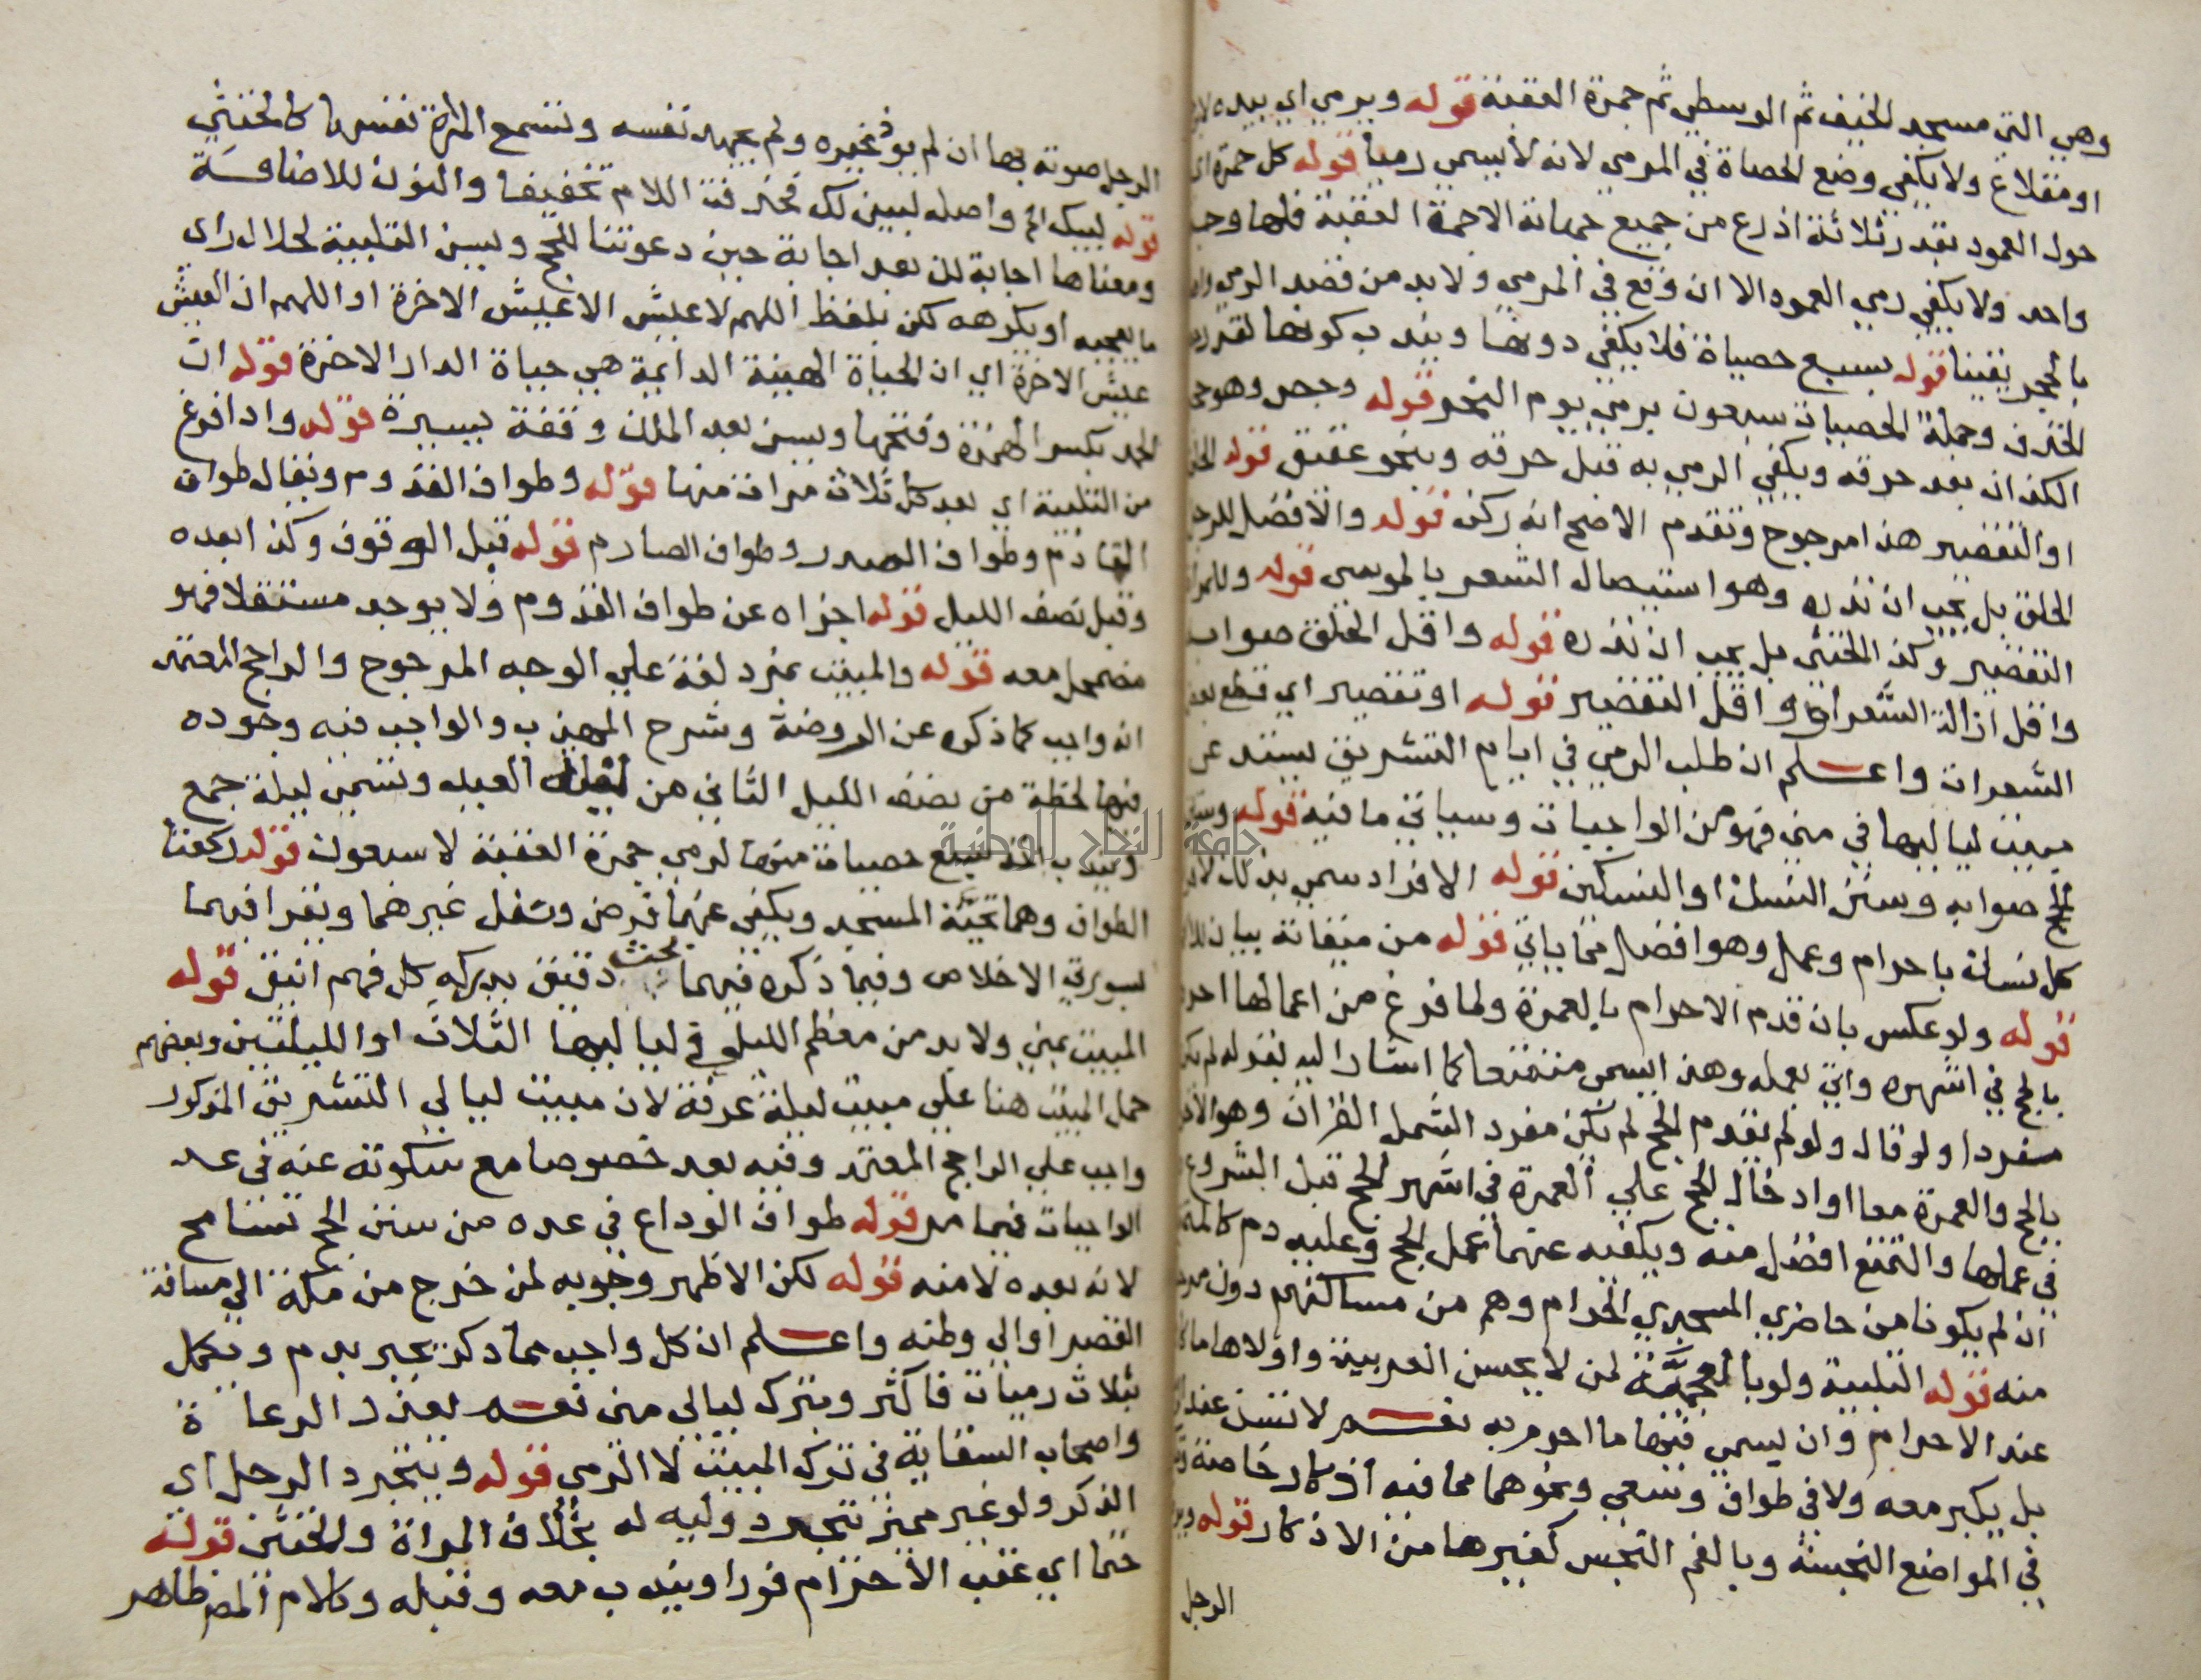 وهي التي مسجد الخيف ثم الوسطى ثم جمرة العقبة قوله ويرمي اي بيده لا
او مقلاع ولا يكفي وضع الحصاة في المرمي لانه لا يسمى رميا قوله كل جمرة اي
حول العمود بقدر ثلاثة اذرع من جميع جهاته الا جمرة العقبة فلها وجه
واحد ولا يكفي رمي العمود الا ان وقع في المرمي ولا بد من قصد الرمي وان
بالحجر يقينا قوله بسبع حصياة فلا يكفي دونها ويندب كونها بقدر
الخذف وجملة الحصيات سبعون يرمي يوم النحر قوله وحجر وهو
الكذان بعد حرقه ويكفي الرمي به قبل حرقه وبنحو عقيق قوله الحلق
او التقصير هذا مرجوح وتقدم الاصح انه ركن قوله والافضل للرجل
الحلق بل يجب ان نذره وهو استيصال الشعر بالموسى قوله وللمراة
التقصير وكذا الخنثى بل يجب ان نذره قوله واقل الحلق صوابه
واقل ازالة الشعر او واقل التقصير قوله او تقصير اي قطع بعض
الشعرات واعلم ان طلب الرمي في ايام التشريق يستدعي
مبيت لياليها في منى فهو من الواجبات وسياتي ما فيه قوله وسنن
الحج صوابه وسنن النسك او النسكين قوله الافراد سمي بذلك لان
كل نسك باحرام وعمل وهو افضل مما ياتي قوله من ميقاته بيان
قوله ولو عكس بان قدم الاحرام بالعمرة ولما فرغ من اعمالها احرم
بالحج في اشهره واتى بعمله وهذا يسمى متمتعا كما اشار اليه بقوله لم يكن
مفردا ولو قال ولو لم يقدم الحج لم يكن مفرد الشمل القران وهو الاحرام
بالحج والعمرة معا او ادخال الحج على العمرة في اشهر الحج قبل الشروع
في عملها والتمتع افضل منه ويكفيه عنهما عمل الحج وعليه دم كالمتمتع
ان لم يكونا من حاضري المسجد الحرام وهم من مساكنهم دون
منه قوله التلبية ولو بالعجمية لمن لا يحسن العربية واولاها ما
عند الاحرام وان يسمي فيها ما احرم به نعم لا تسن عند
بل يكبر معه ولا في طواف وسعي ونحوهما مما فيه اذكار خاصة
في المواضع النجسة وبالفم النجس كغيرها من الاذكار قوله
الرجل
الرجل صوته بها ان لم يوذ غيره ولم يجهد نفسه وتسمع المراة نفسها كالخنثى
قوله لبيك الخ واصله لبين لك فحذفت اللام تخفيفا والنون للاضافة
ومعناها اجابة لك بعد اجابة حين دعوتنا للحج ويسن التلبية لحلال راي
ما يعجبه او يكرهه لكن بلفظ اللهم لا عيش الا عيش الاخرة او اللهم ان العيش
عيش الاخرة اي ان الحياة الهينة الدايمة هي حياة الدار الاخرة قوله ان
الحمد بكسر الهمزة وفتحها ويسن بعد الملك وقفة يسيرة قوله واذا فرغ
من التلبية اي بعد كل ثلاث مرات منها قوله وطواف القدوم ويقال طواف
القادم وطواف الصدر وطواف الصارم قوله قبل الوقوف وكذا بعده
وقبل نصف الليل قوله اجزاه عن طواف القدوم ولا يوجد مستقلا فهو
مضمحل معه قوله والمبيت بمزدلفة على الوجه المرجوح والراجح المعتمد
انه واجب كما ذكره عن الروضة وشرح المهذب والواجب فيه وجوده
فيها لحظة من نصف الليل الثاني من ليلة العيد وتسمى ليلة جمع
ويندب اخذ سبع حصيات منها لرمي جمرة العقبة لا سبعون قوله ركعتا
الطواف وهما تحية المسجد ويكفي عنهما فرض ونفل غيرهما ويقرا فيهما
بسورتي الاخلاص وفيما ذكره فيهما بحث دقيق يدركه كل فهم انيق قوله
المبيت بمنى ولا بد من معظم الليل في لياليها الثلاث او الليلتين وبعضهم
حمل المبيت هنا على مبيت ليلة عرفة لان مبيت ليالي التشريق المذكور
واجب على الراجح المعتمد وفيه بعد خصوصا مع سكوته عنه في عد
الواجبات فيما مر قوله طواف الوداع في عده من سنن الحج تسامح
لانه بعده لا منه قوله لكن الاظهر وجوبه لمن خرج من مكة الى مسافة
القصر او الى وطنه واعلم ان كل واجب مما ذكر يجبر بدم ويكمل
بثلاث رميات فاكثر وبترك ليالي منى نعم يعذر الرعاة
واصحاب السقاية في ترك المبيت لا الرمي قوله ويتجرد الرجل اي
الذكر ولو غير مميز تجرد وليه له بخلاف المراة والخنثى قوله
حتما اي عقب الاحرام فورا ويندب معه وقبله وكلام المص ظاهر
جامعة النجاح الوطنية